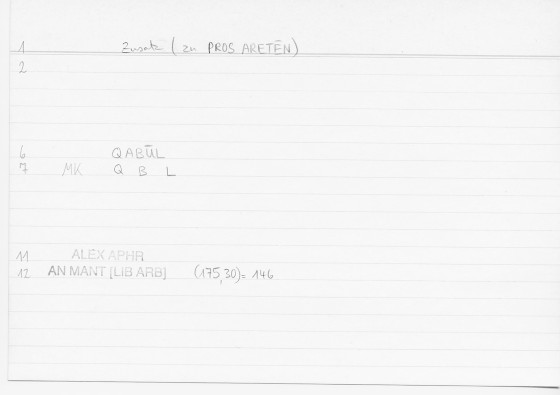 1 Zusatz (zu PROS ARETĒN)
2
6 QABŪL
7 MK Q B L
11 ALEX APHR
12 AN MANT [LIB ARB] (175,30) = 146